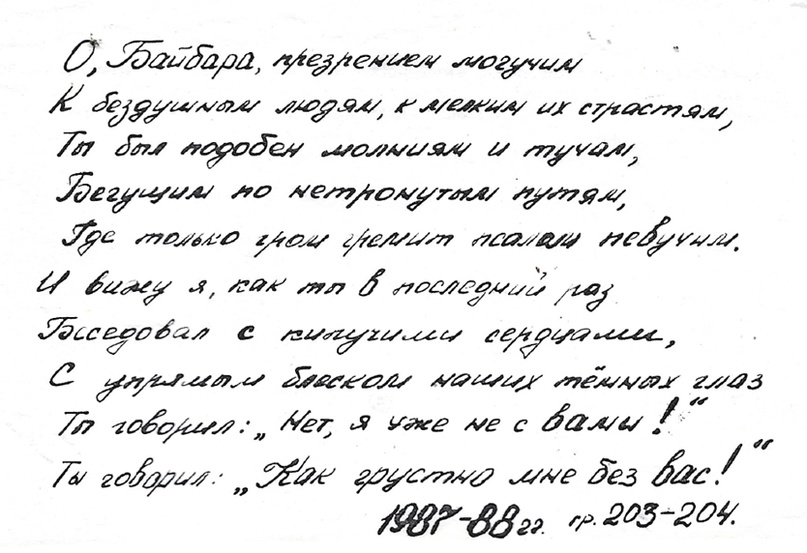 О, Байбара, презрением могучим
К бездушным людям, к мелким их страстям,
Ты был подобен молниям и тучам,
Бегущим по нетронутым путям,
Где только гром гремит псалом певучим.
И вижу я, как ты в последний раз
Беседовал с кипучими сердцами,
С упрямым блеском наших тёмных глаз
Ты говорил: „Нет, я уже не с вами!“
Ты говорил: „Как грустно мне без вас!“
1987-88 гг. гр. 203-204.